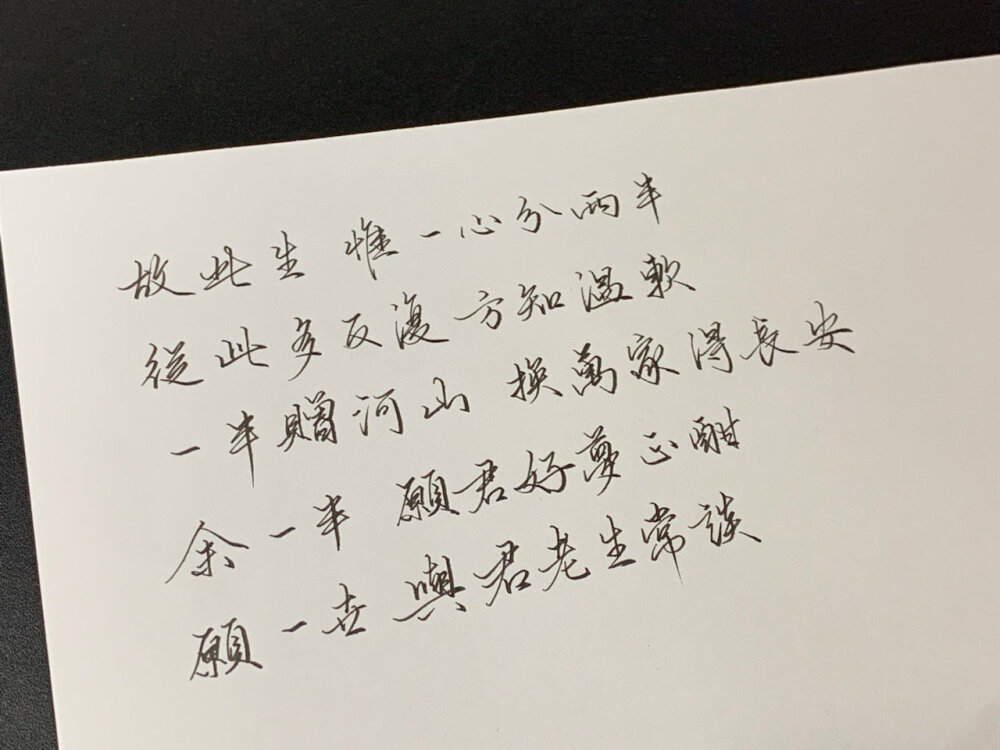 故此生 惟一心分兩半
從此多反復方知溫軟
一半贈河山 换萬家得長安
余一半 願君好夢正酣
願一世 與君老生常談